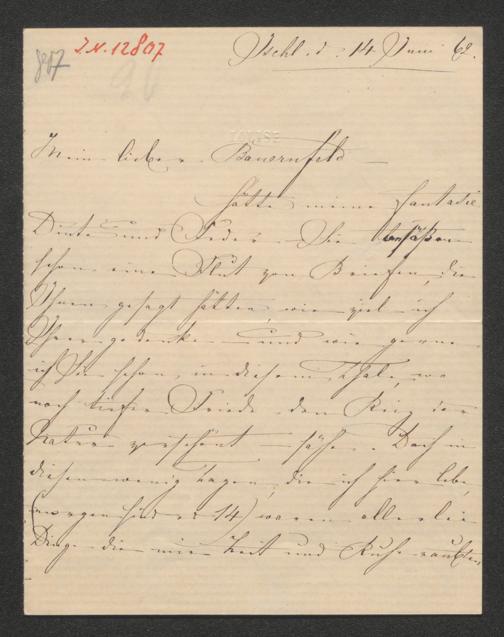 I.N. 12807
807
Ischl. d. 14 Juni 62.
LOUISE
Mein lieber Bauernfeld –
Hätte meine Fantasie
Dinte und Feder – Sie besäßen
schon eine Flut von Briefen, die
Ihnen gesagt hätten, wie viel ich
Ihrer gedenke – und wie gerne
ich Sie schon, in diesem Thale, wo
noch tiefer Friede den Reiz der
Natur verschönt – sähe. Doch in
diesen wenig Tagen, die ich hier lebe,
(morgen sind es 14) waren allerlei
Dinge die mir Zeit und Ruhe raubten,